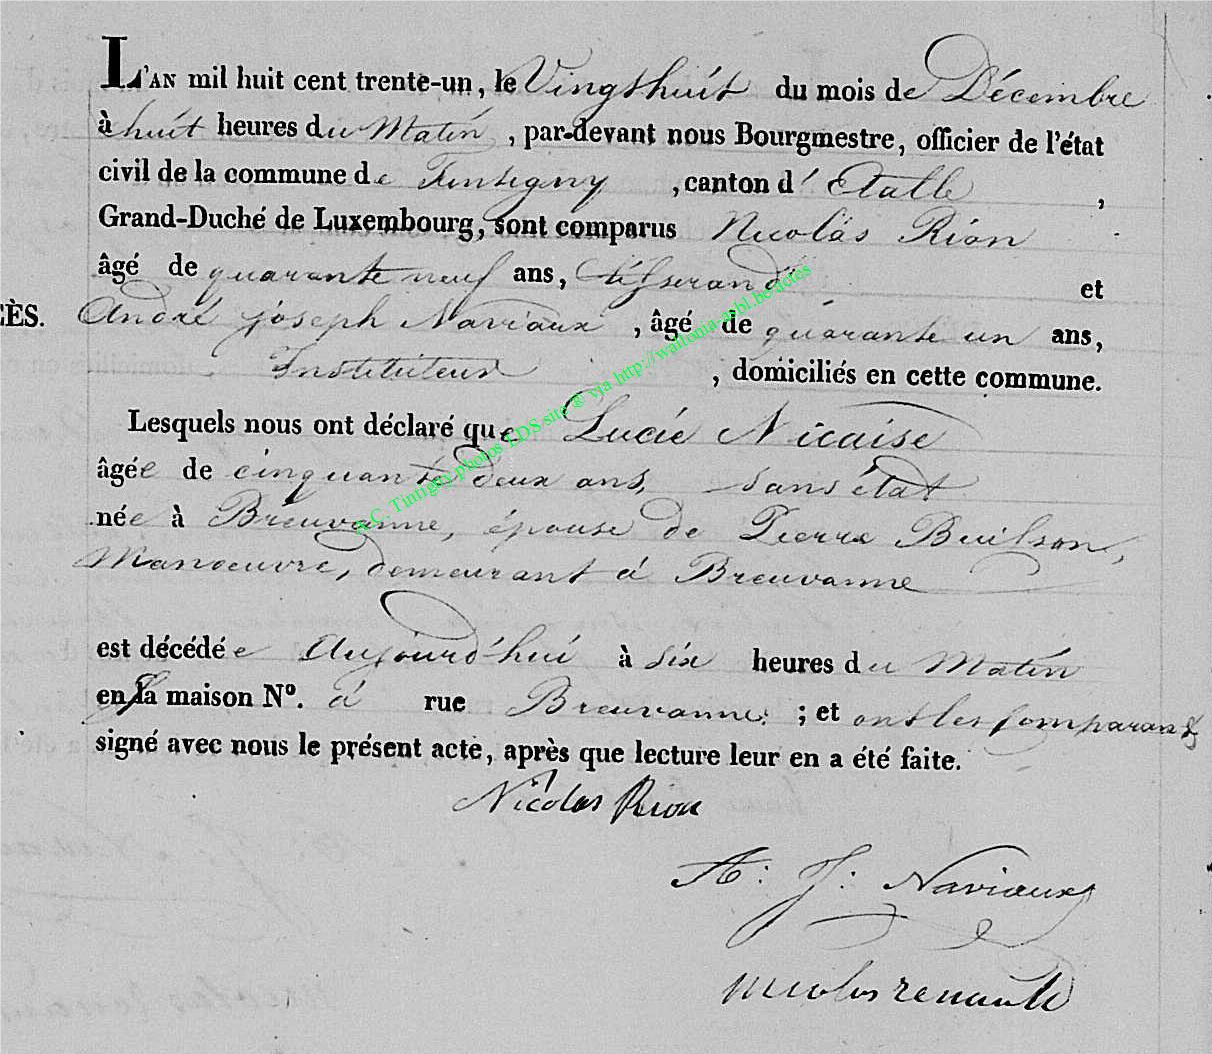 L'AN mil huit cent trente-un, le Vingthuit du mois de Décembre
à huit heures du Matin, par-devant nous Bourgmestre, officier de l'état
civil de la commune de Tintigny, canton d'Etalle,
Grand-Duché de Luxembourg, sont comparus Nicolas Rion
âgé de quarante neuf ans, tisserand et
CÈS. André joseph Naviaux, âgé de quarante un ans,
Instituteur, domiciliés en cette commune.
Lesquels nous ont déclaré que Lucie Nicaise
âgée de cinquante deux ans, sans état
née à Breuvanne, épouse de Pierre Builson,
Manoeuvre, demeurant à Breuvanne
est décédée Aujourd'hui à six heures du Matin
en sa maison N°. à rue Breuvanne; et ont les Comparants
signé avec nous le présent acte, après que lecture leur en a été faite.
Nicolas Rion
A: J: Naviaux
nicolas renauld
A.C. Tintigny photos LDS site ® via http://wallonia-asbl.be/actes